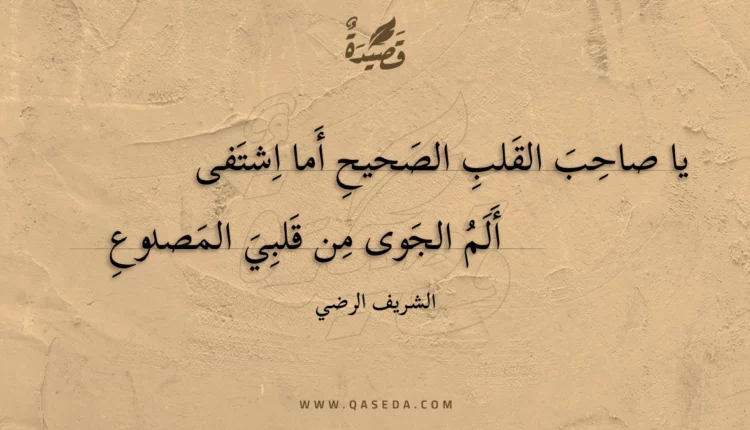 قَصيدَةٌ
يا صاحِبَ القَلبِ الصَحيحِ أَما اِشتَفى
أَلَمُ الجَوى مِن قَلبِيَ المَصدوعِ
الشريف الرضي
WWW.QASEDA.COM